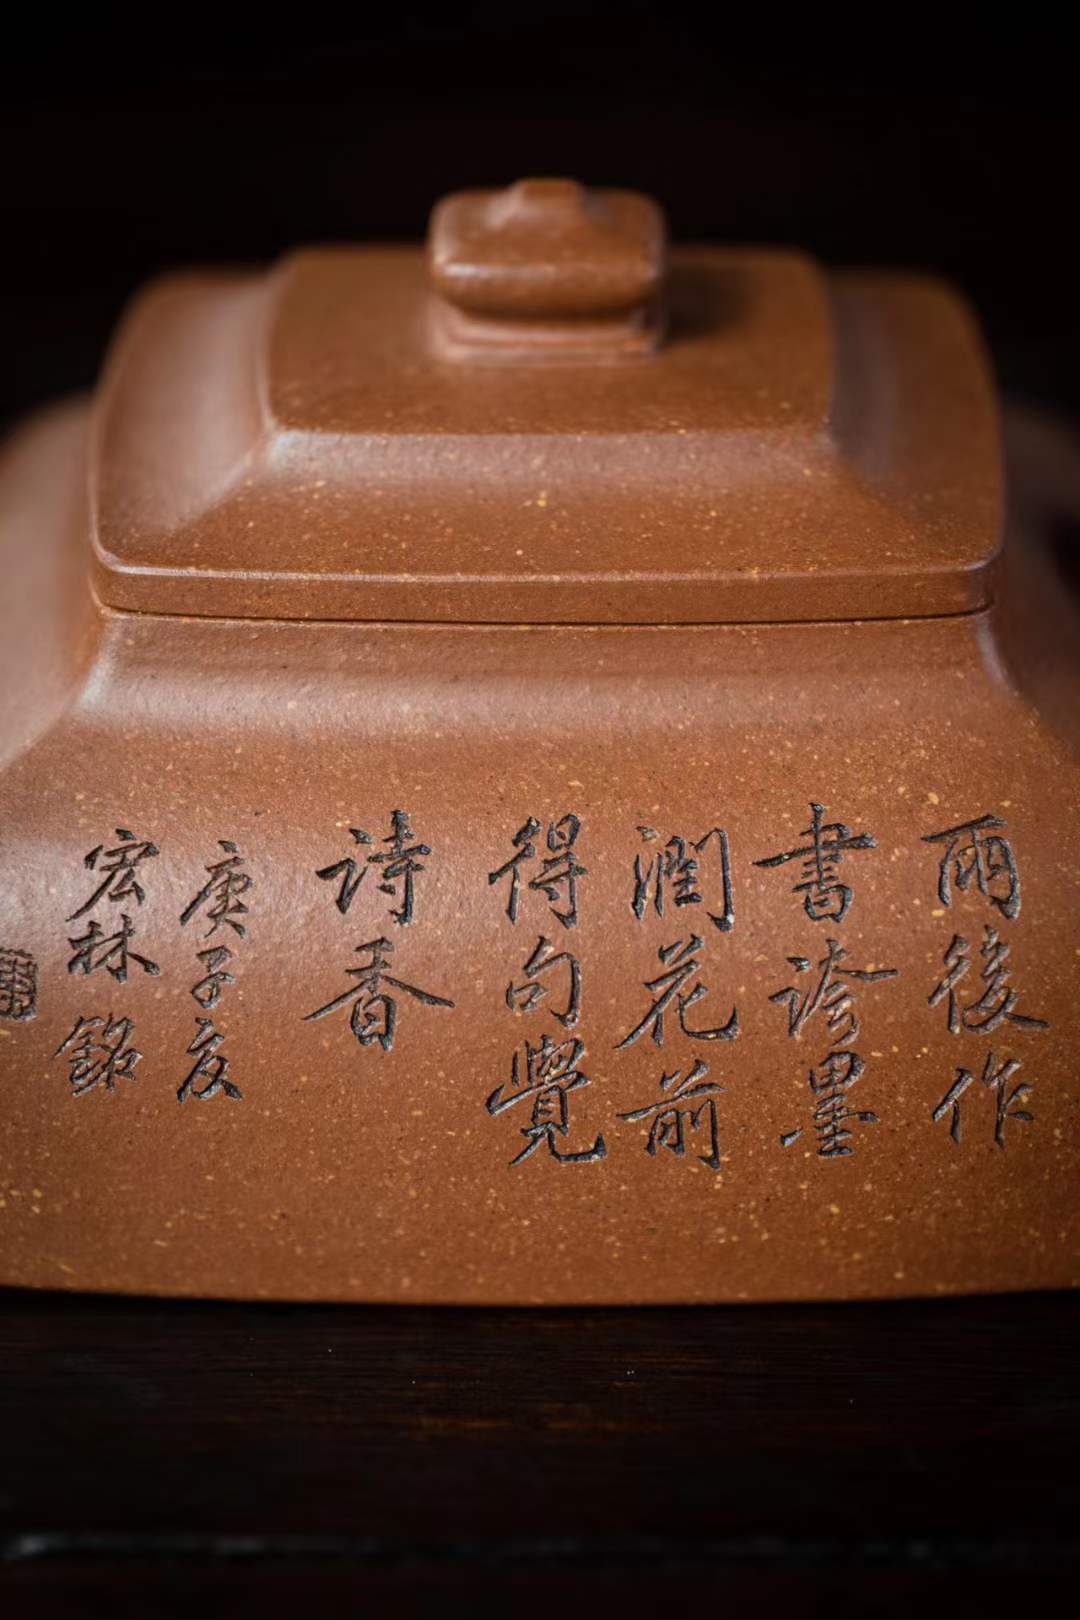 雨後作
書誇墨
潤花前
得句覺
诗香
庚子夏
宏林銘